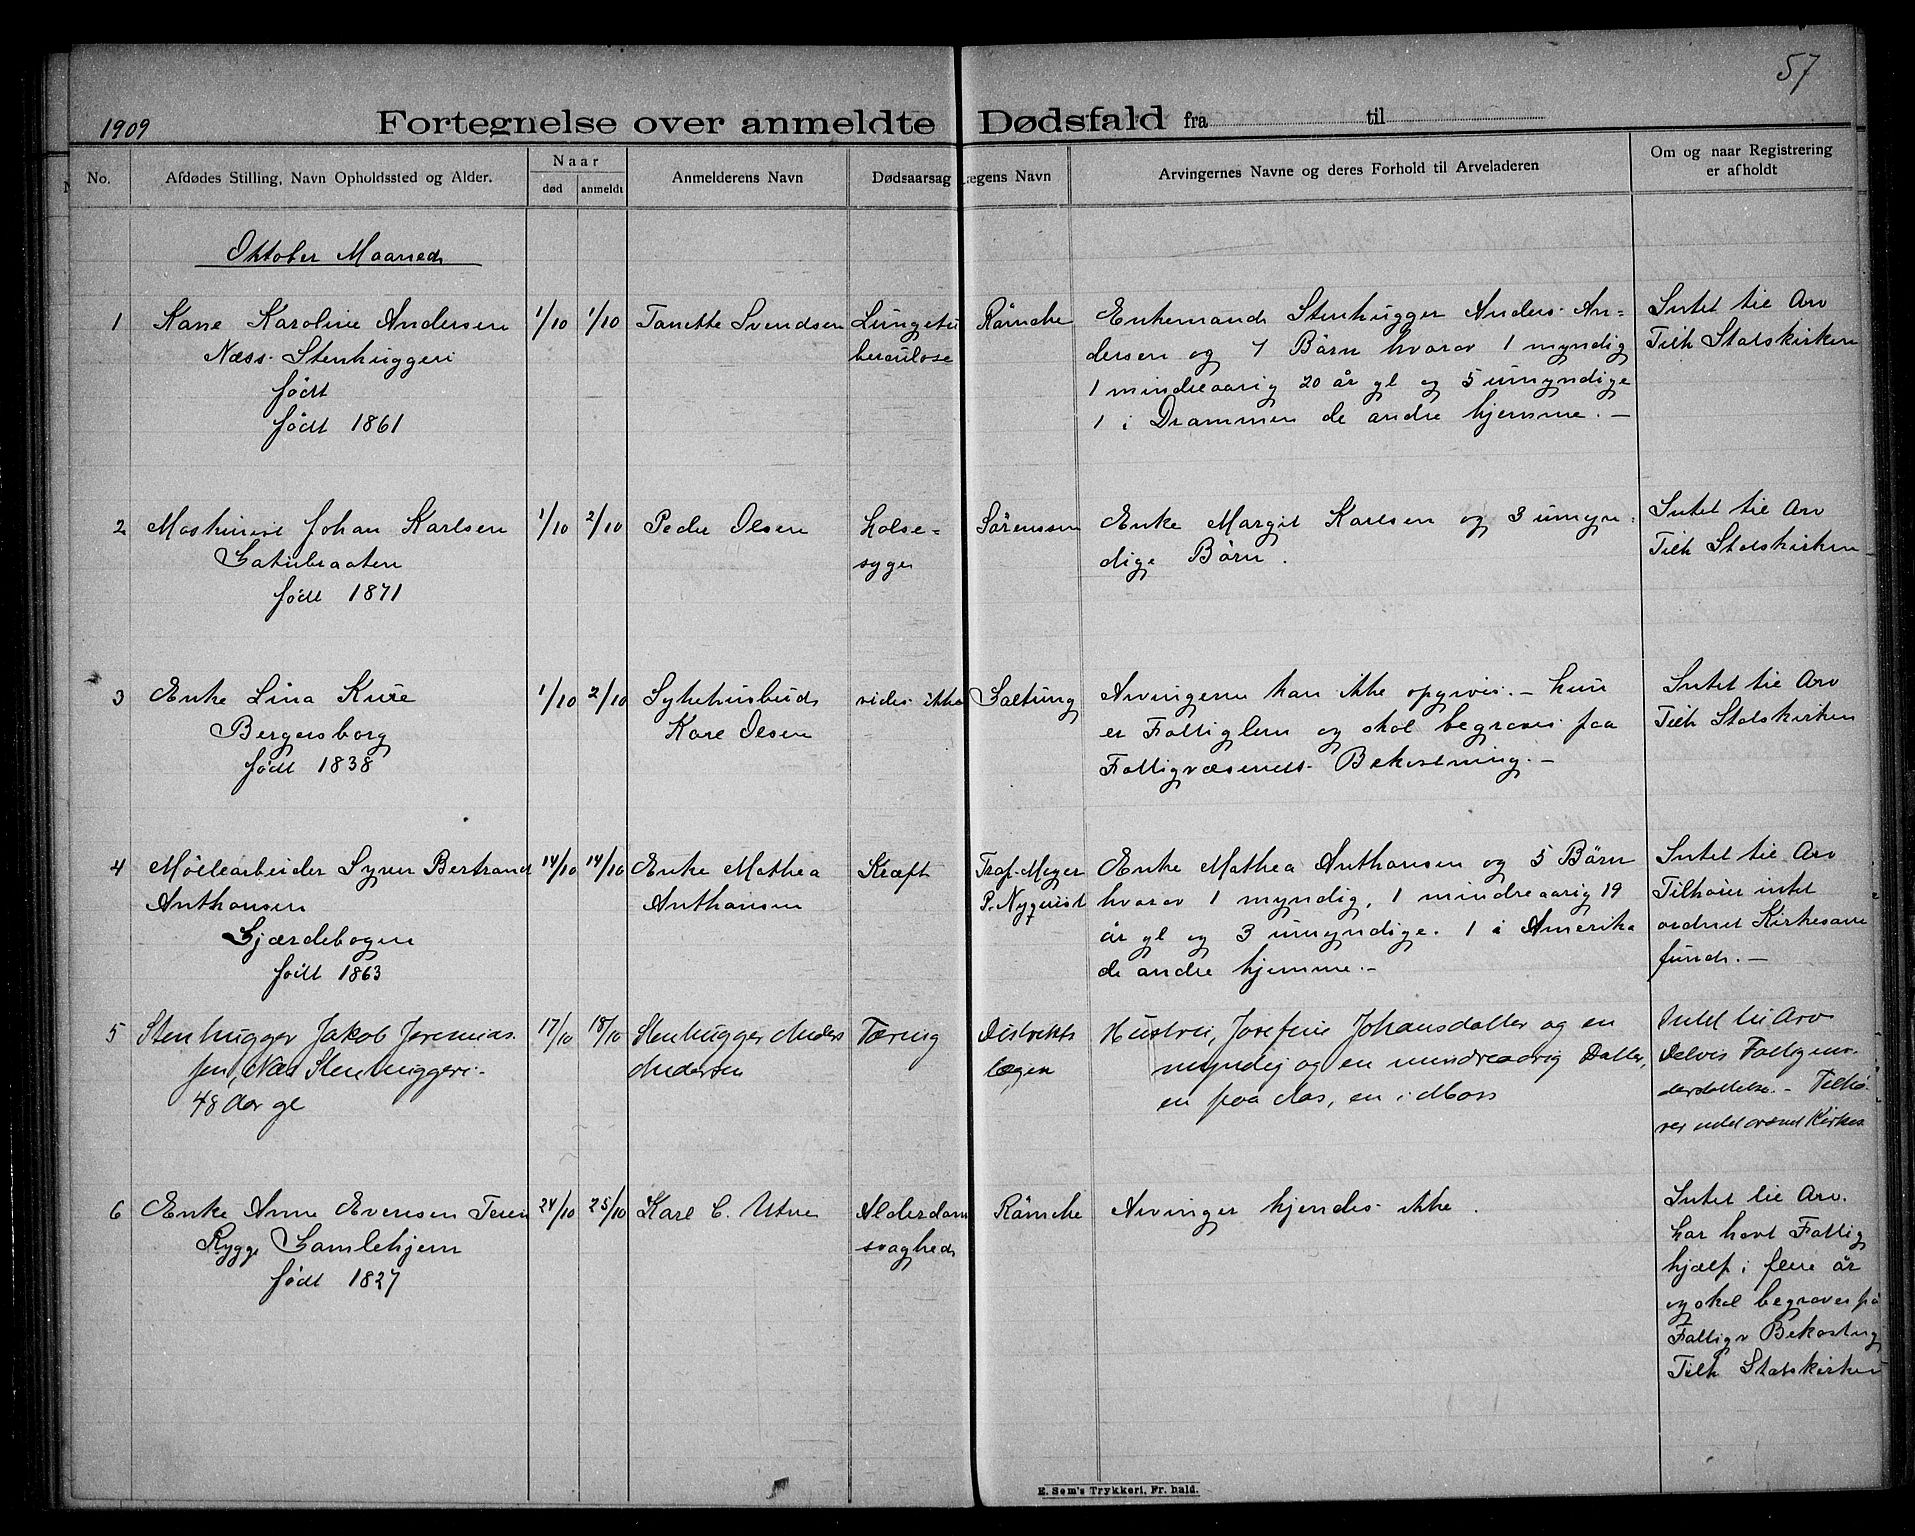 57
1909
Fortegnelse over anmeldte Dødsfald fra til
No.
Afdødes Stilling, Navn Opholdssted og Alder.
Naar
død
anmeldt
Anmelderens Navn
Dødsaarsag
Lægens Navn
Arvingernes Navne og deres Forhold til Arveladeren
Om og naar Registrering
er afholdt
Oktober Maaned
1
Kone Karoline Andersen
Næss Stenhuggeri
født
født 1861
1/10
1/10
Tanette Svendsen
Lungetu
berculose
Rømcke
Enkemand Stenhugger Anders An=
dersen og 7 Børn hvorav 1 myndig
1 mindreaarig 20 år gl og 5 umyndige
1 i Drammen de andre hjemme. —
Intet til Arv
Tilh Statskirken
2
Maskinist Johan Karlsen
født 1871
1/10
2/10
Peder Olsen
Halse-
syge
Sørenssen
Enke Margit Karlsen og 3 umyn-
dige Børn.
Intet til Arv
Tilh Statskirken
3
Enke Lina Kure
Bergersborg
født 1838
1/10
2/10
Sykehusbud
Kare Olsen
vides ikke
Enke
Arvingerne kan ikke opgives. — hun
er Fattiglem og skal begraves paa
Fattigvæsenets Bekostning. —
Intet til Arv
Tilh Statskirken
4
Møllearbeider Syver Bertrand
Anthonsen
Gjærdebogen
født 1863
14/10
14/10
Enke Mathea
Anthonsen
Kræft
Prof. Meyer
P. Nyquist
Enke Mathea Anthonsen og 5 Børn
hvorav 1 myndig, 1 mindreaarig 19
år gl og 3 umyndige. 1 i Amerika
de andre hjemme. —
Intet til Arv
Tilhører intet
ordnet Kirkesam
fund. —
5
Stenhugger Jakob Jeremias
sen, Næs Stenhuggeri.
48 Aar gl
17/10
18/10
Stenhugger Anders
Andersen
Tæring
Distrikts
lægen
Hustru, Josefine Johansdatter og en
myndig og en mindreaarig Datter,
en paa Aas, en i Moss
Intet til Arv
Delvis Fattigun-
derstøttelse. — Tilhø-
rer intet ordnet Kirkes
6
Enke Anne Evensen
Rygge Gamlehjem
født 1827
24/10
25/10
Karl C. Utne
Alderdom
svaghed
Rømcke
Arvinger kjendes ikke.
Intet til Arv.
har havt Fattig
hjælp i flere år
og skal begraves på
Fattigv Bekostnig
Tilh Statskirken
E. Sem's Trykkeri, Fr. hald.